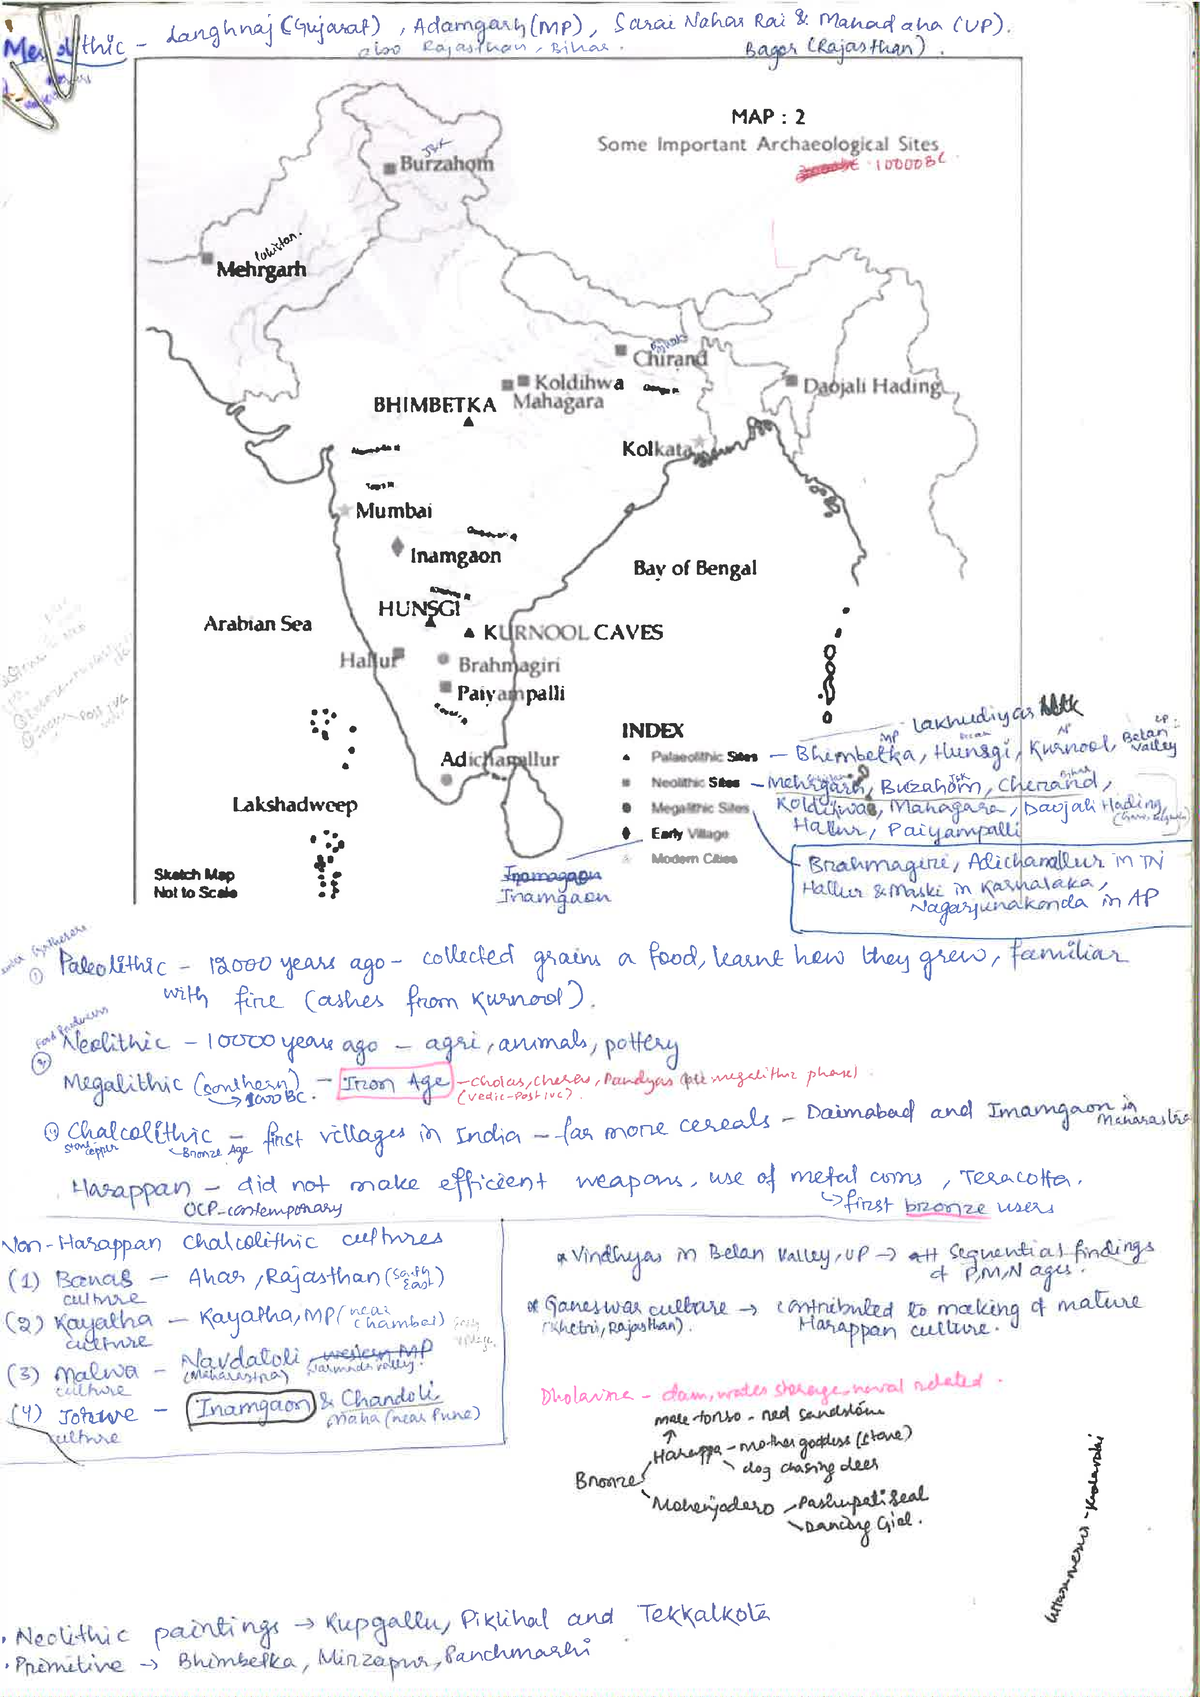 Mesolithic - Langhnaj (Gujarat), Adamgarh (MP), Sarai Nahar Rai & Mahadaha (UP).
also Rajasthan, Bihar.
Bagor (Rajasthan).
MAP : 2
Some Important Archaeological Sites
10000BC
J&K
Burzahom
Pakistan.
Mehrgarh
Chirand
Koldihwa
Mahagara
Daojali Hading
BHIMBETKA
Kolkata
Mumbai
Inamgaon
Bay of Bengal
HUNSGI
Arabian Sea
KURNOOL CAVES
Hallur
Brahmagiri
Paiyampalli
Adichanallur
Lakshadweep
Sketch Map
Not to Scale
INDEX
Palaeolithic Sites
Neolithic Sites
Megalithic Sites
Early Village
Modern Cities
Lakhudiyar
MP
AP
UP
- Bhimbetka, Hunsgi, Kurnool, Belan Valley
- Mehrgarh, Buzahom, Cherand,
J&K
Bihar
Koldihwa, Mahagara, Daojali Hading,
Hallur, Paiyampalli
Brahmagiri, Adichanallur in TN
Hallur & Maski in Karnataka,
Nagarjunakonda in AP
Inamagaon
Inamgaon
(1) Paleolithic - 12000 years ago - collected grains a food, learnt how they grew, familiar
with fire (ashes from Kurnool).
Food Producers
(2) Neolithic - 10000 years ago - agri, animals, pottery
Megalithic (southern) - Iron Age - Cholas, Cheras, Pandyas (pre megalithic phase).
→ 1000 BC.
(Vedic-Post IVC)
(4) Chalcolithic - first villages in India - far more cereals - Daimabad and Inamgaon in Maharastra
stone copper
Bronze Age
Harappan - did not make efficient weapons, use of metal coins, Teracotta.
OCP-contemporary
→ first bronze users
Non-Harappan chalcolithic cultures
(1) Banas culture - Ahar, Rajasthan (South East)
(2) Kayatha culture - Kayatha, MP (near Chambal)
(3) Malwa culture - Navdatoli western MP
(Maharastra) Narmada valley.
(4) Jorwe culture - Inamgaon & Chandoli
Maha (near Pune)
* Vindhyas in Belan Valley, UP → all sequential findings
of P,M,N ages.
* Ganeswar culture → contributed to making of mature
(Khetri, Rajasthan). Harappan culture.
Dholavira - dam, water storage, naval related.
male torso - red sandstone
Harappa - mother goddess (stone)
dog chasing deer
Bronze
Mohenjodaro - Pashupati Seal
Dancing Girl.
• Neolithic paintings → Kupgallu, Piklihal and Tekkalkota
• Primitive → Bhimbetka, Mirzapur, Panchmarhi